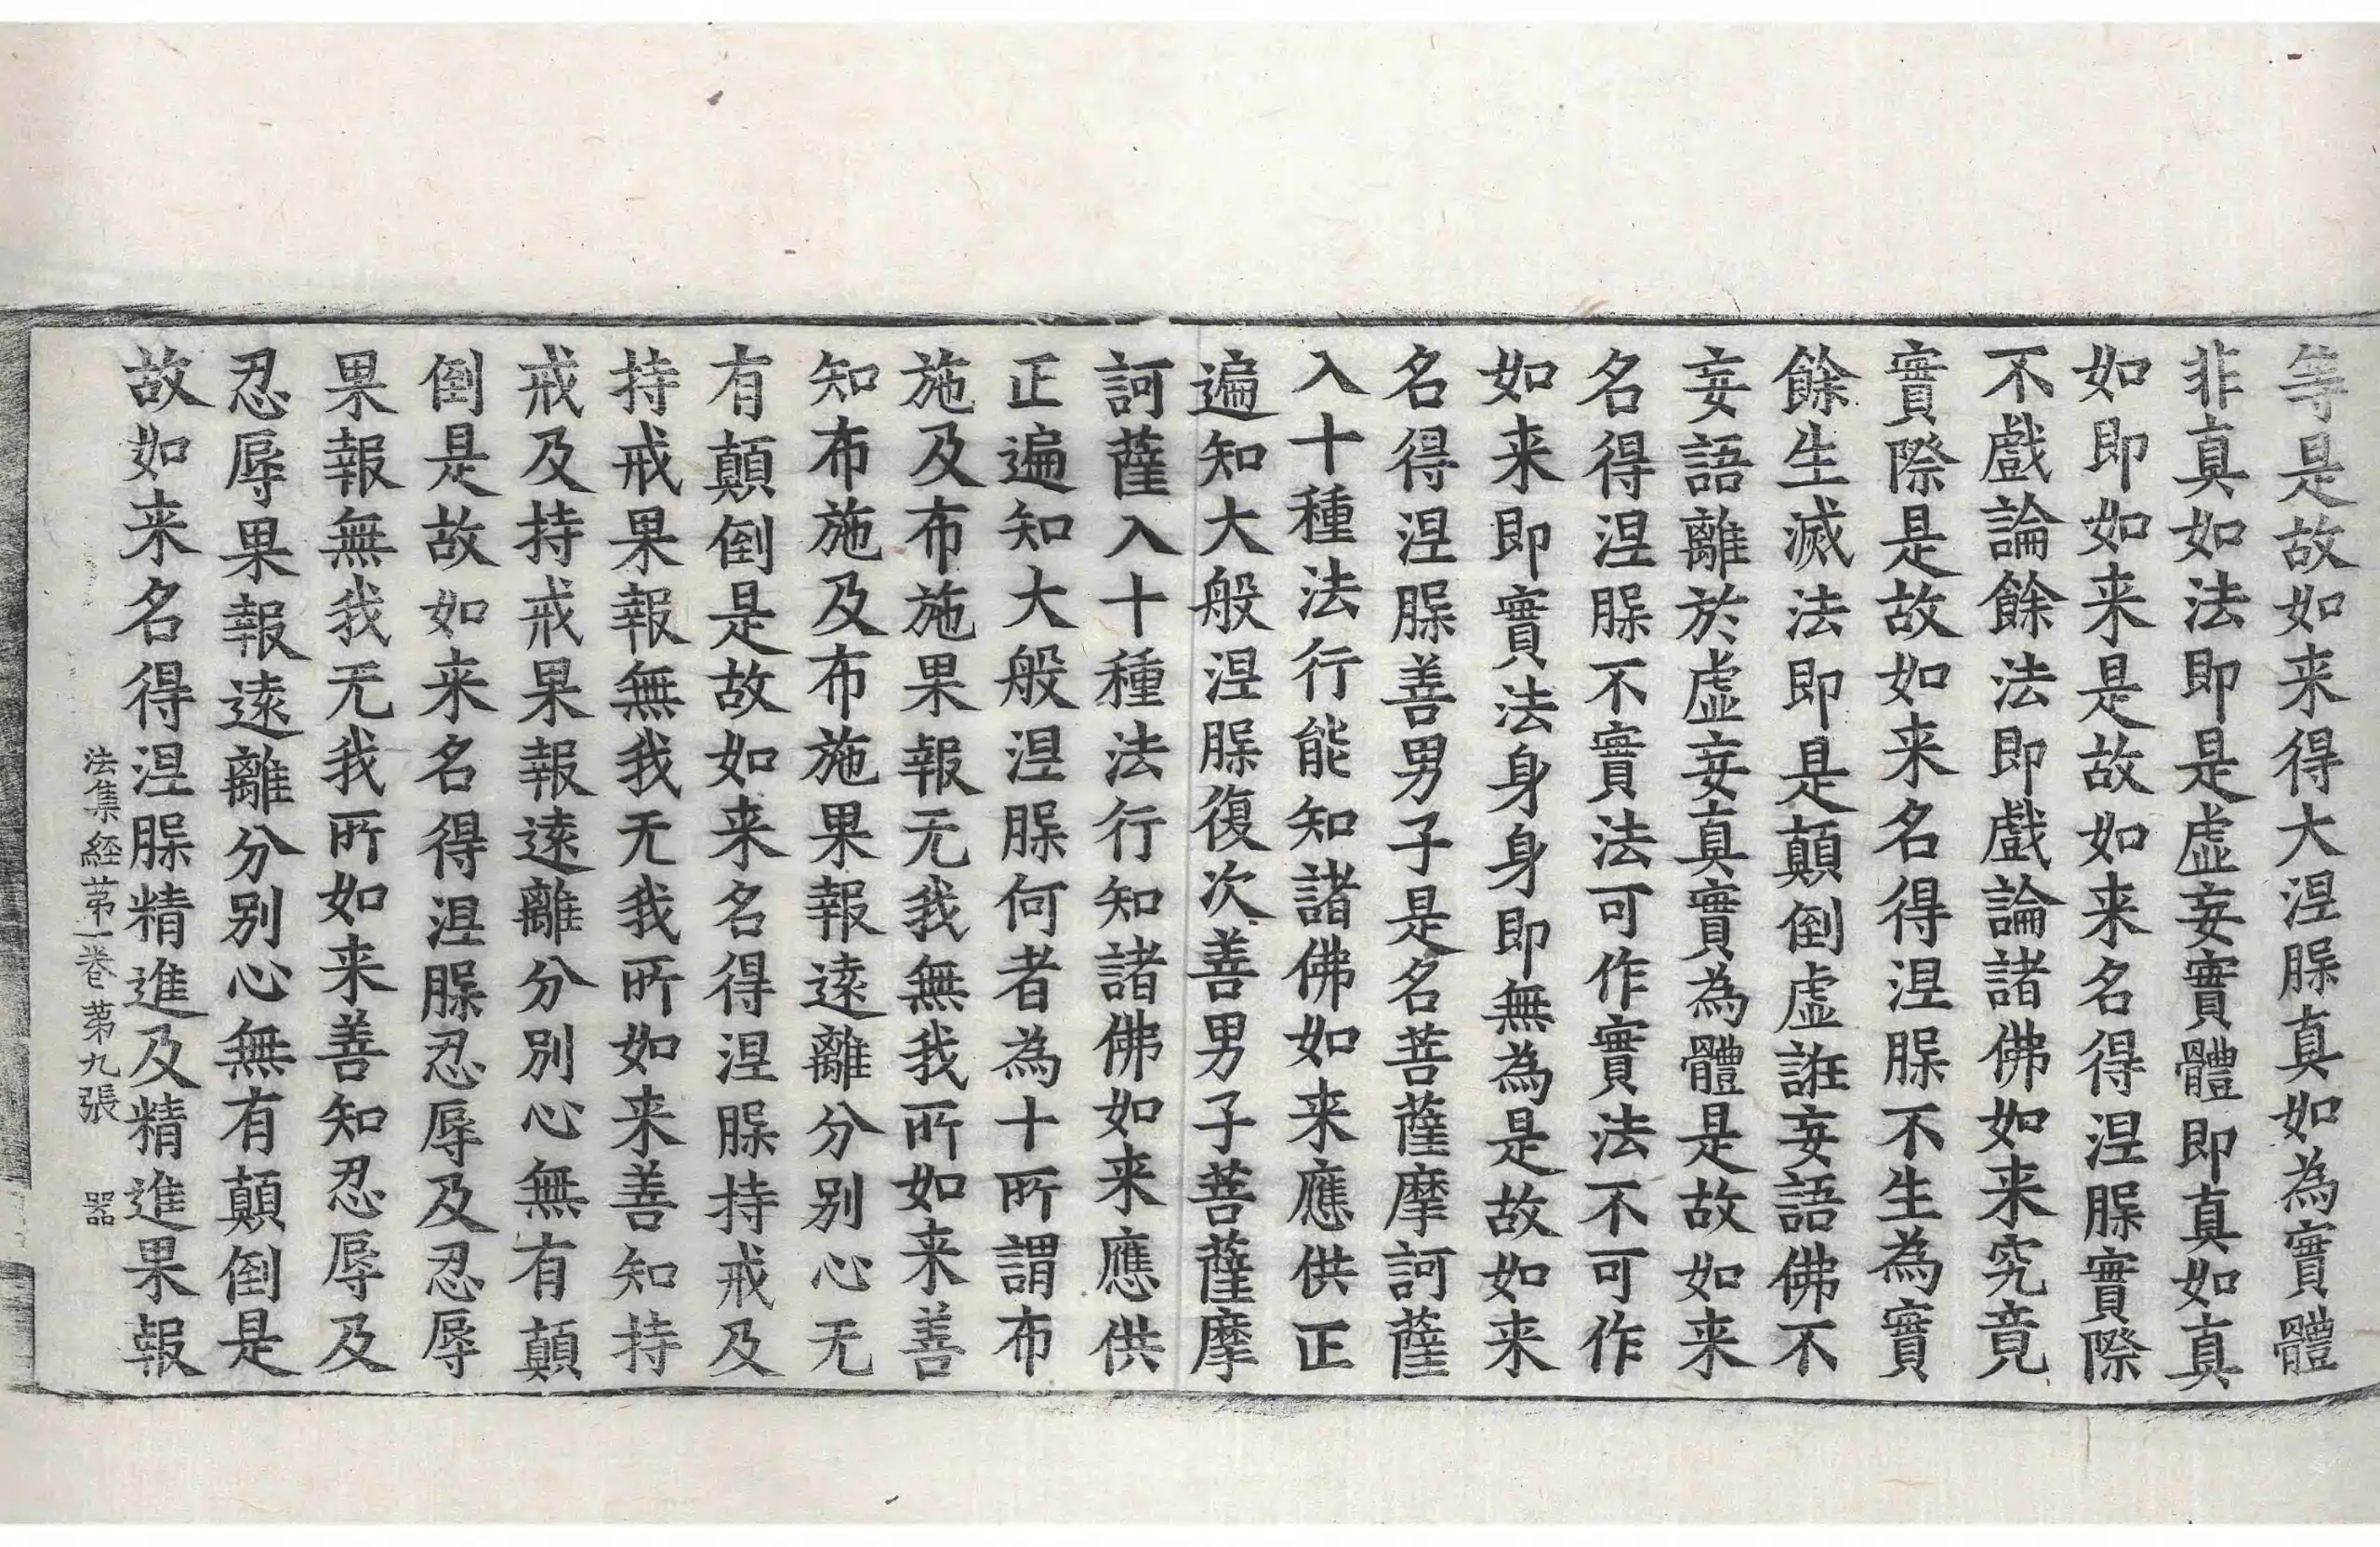 等是故如来得大涅槃真如為實體
非真如法即是虛妄實體即真如真
如即如来是故如来名得涅槃實際
不戲論餘法即戲論諸佛如来究竟
實際是故如来名得涅槃不生為實
餘生滅法即是顛倒虛誑妄語佛不
妄語離於虛妄真實為體是故如来
名得涅槃不實法可作實法不可作
如来即實法身身即無為是故如来
名得涅槃善男子是名菩薩摩訶薩
入十種法行能知諸佛如来應供正
遍知大般涅槃復次善男子菩薩摩
訶薩入十種法行知諸佛如来應供
正遍知大般涅槃何者為十所謂布
施及布施果報无我無我所如来善
知布施及布施果報遠離分别心无
有顛倒是故如来名得涅槃持戒及
持戒果報無我无我所如来善知持
戒及持戒果報遠離分別心無有顛
倒是故如来名得涅槃忍辱及忍辱
果報無我无我所如来善知忍辱及
忍辱果報遠離分别心無有顛倒是
故如来名得涅槃精進及精進果報
法集経苐一卷苐九張 器